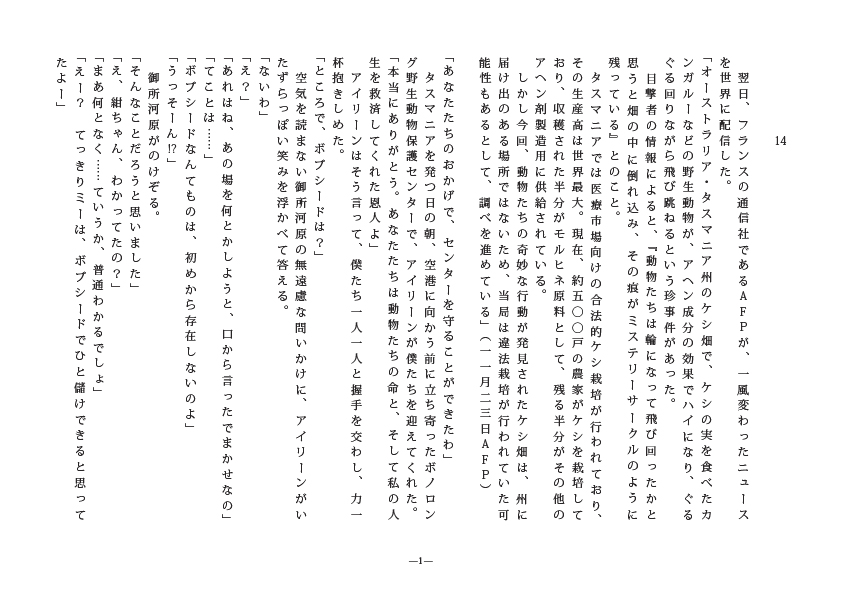 14
　翌日、フランスの通信社であるＡＦＰが、一風変わったニュース
を世界に配信した。
「オーストラリア・タスマニア州のケシ畑で、ケシの実を食べたカ
ンガルーなどの野生動物が、アヘン成分の効果でハイになり、ぐる
ぐる回りながら飛び跳ねるという珍事件があった。
　目撃者の情報によると、『動物たちは輪になって飛び回ったかと
思うと畑の中に倒れ込み、その痕がミステリーサークルのように
残っている』とのこと。
　タスマニアでは医療市場向けの合法的ケシ栽培が行われており、
その生産高は世界最大。現在、約五〇〇戸の農家がケシを栽培して
おり、収穫された半分がモルヒネ原料として、残る半分がその他の
アヘン剤製造用に供給されている。
　しかし今回、動物たちの奇妙な行動が発見されたケシ畑は、州に
届け出のある場所ではないため、当局は違法栽培が行われていた可
能性もあるとして、調べを進めている」（一一月二三日ＡＦＰ）
「あなたたちのおかげで、センターを守ることができたわ」
　タスマニアを発つ日の朝、空港に向かう前に立ち寄ったボノロン
グ野生動物保護センターで、アイリーンが僕たちを迎えてくれた。
「本当にありがとう。あなたたちは動物たちの命と、そして私の人
生を救済してくれた恩人よ」
　アイリーンはそう言って、僕たち一人一人と握手を交わし、力一
杯抱きしめた。
「ところで、ボブシードは？」
　空気を読まない御所河原の無遠慮な問いかけに、アイリーンがい
たずらっぽい笑みを浮かべて答える。
「ないわ」
「え？」
「あれはね、あの場を何とかしようと、口から言ったでまかせなの」
「てことは……」
「ボブシードなんてものは、初めから存在しないのよ」
「うっそーん!?」
　御所河原がのけぞる。
「そんなことだろうと思いました」
「え、紺ちゃん、わかってたの？」
「まあ何となく……ていうか、普通わかるでしょ」
「えー？　てっきりミーは、ボブシードでひと儲けできると思って
たよー」
―1―